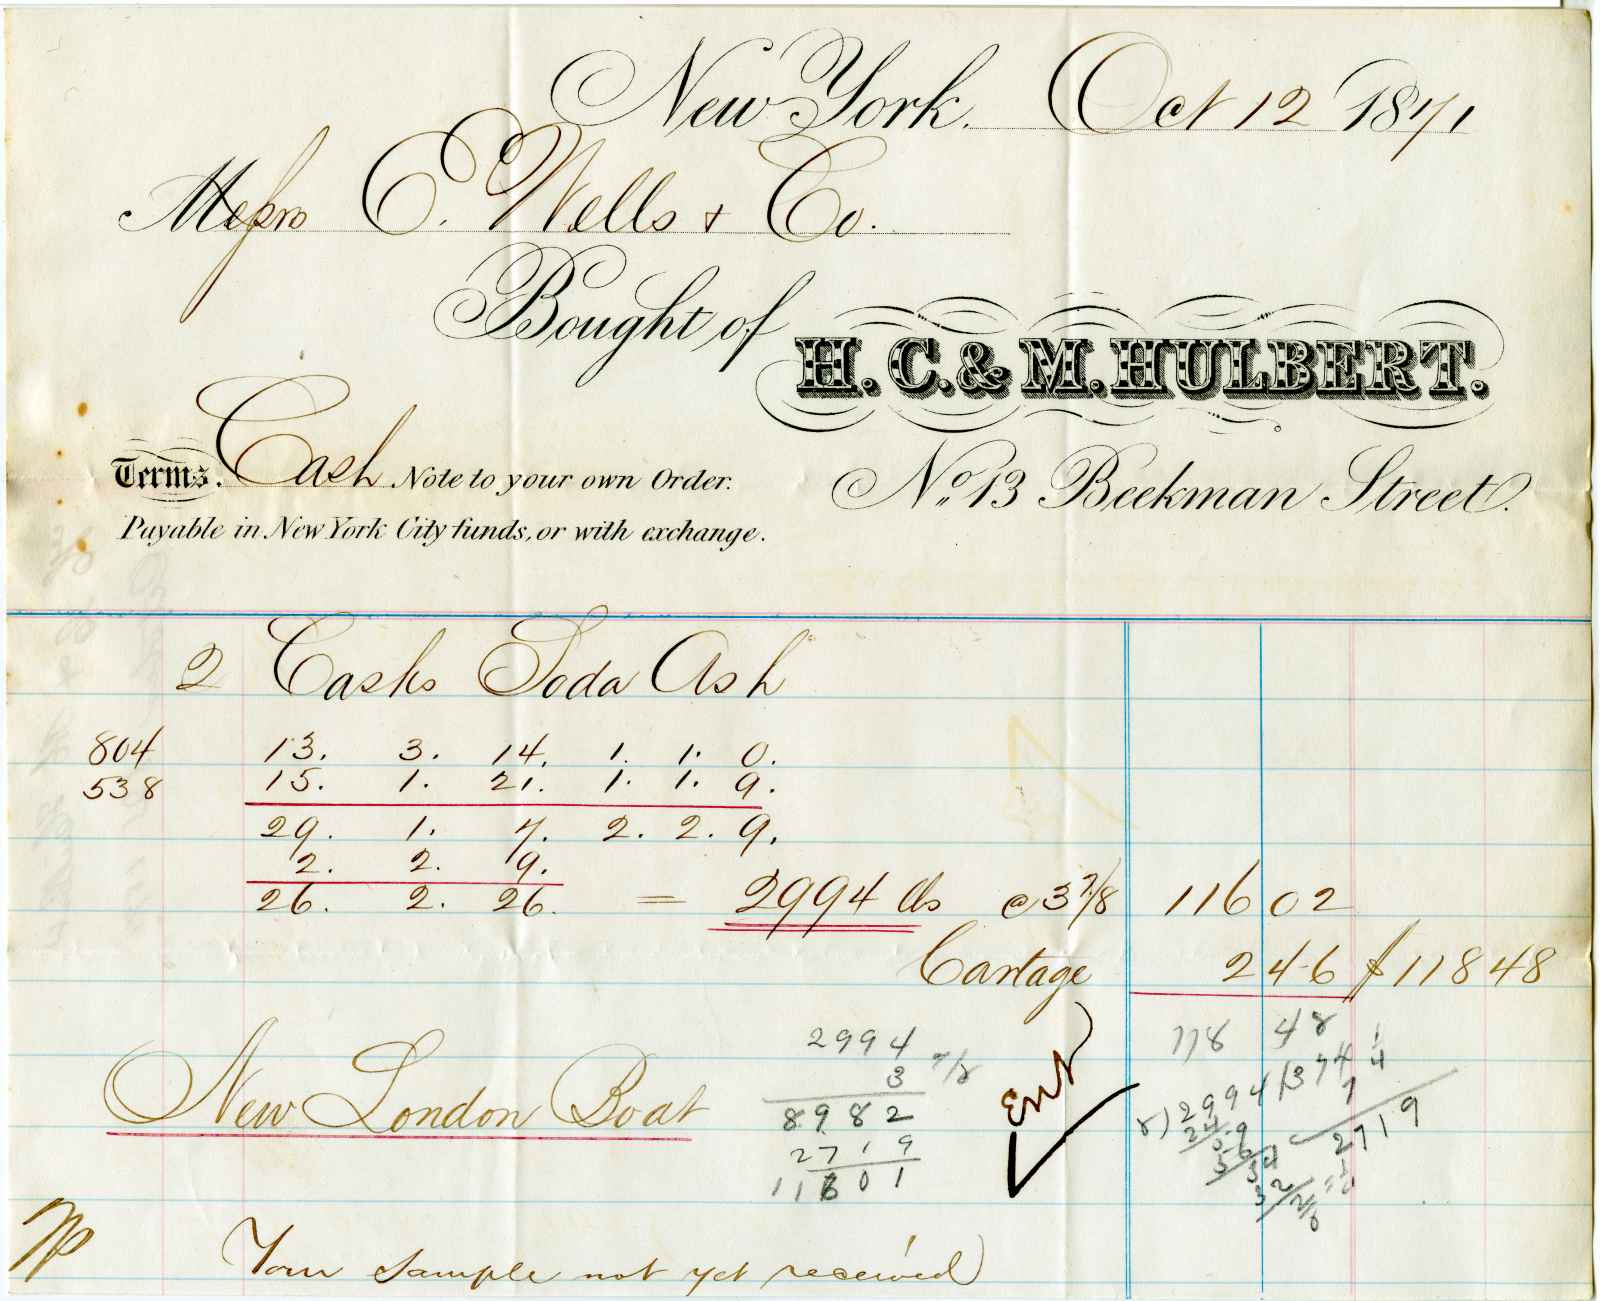 New York. Oct 12 1871
Messrs E. Wells & Co.
Bought of H. C. & M. HULBERT.
Terms. Cash Note to your own Order.
No. 13 Beekman Street.
Payable in New York City funds, or with exchange.
2 Casks Soda Ash
804 13. 3. 14. 1. 1. 0.
538 15. 1. 21. 1. 1. 9.
29. 1. 7. 2. 2. 9.
2. 2. 9.
26. 2. 26. = 2994 lbs @ 3 7/8 116 02
Cartage 2 46 $118 48
118 48
2994
3 7/8
8982
2719
11601
Ent
8)2994/374 1/4
7
2719
24
59
56
34
32
2/8 = 1/4
New London Boat
Your sample not yet received